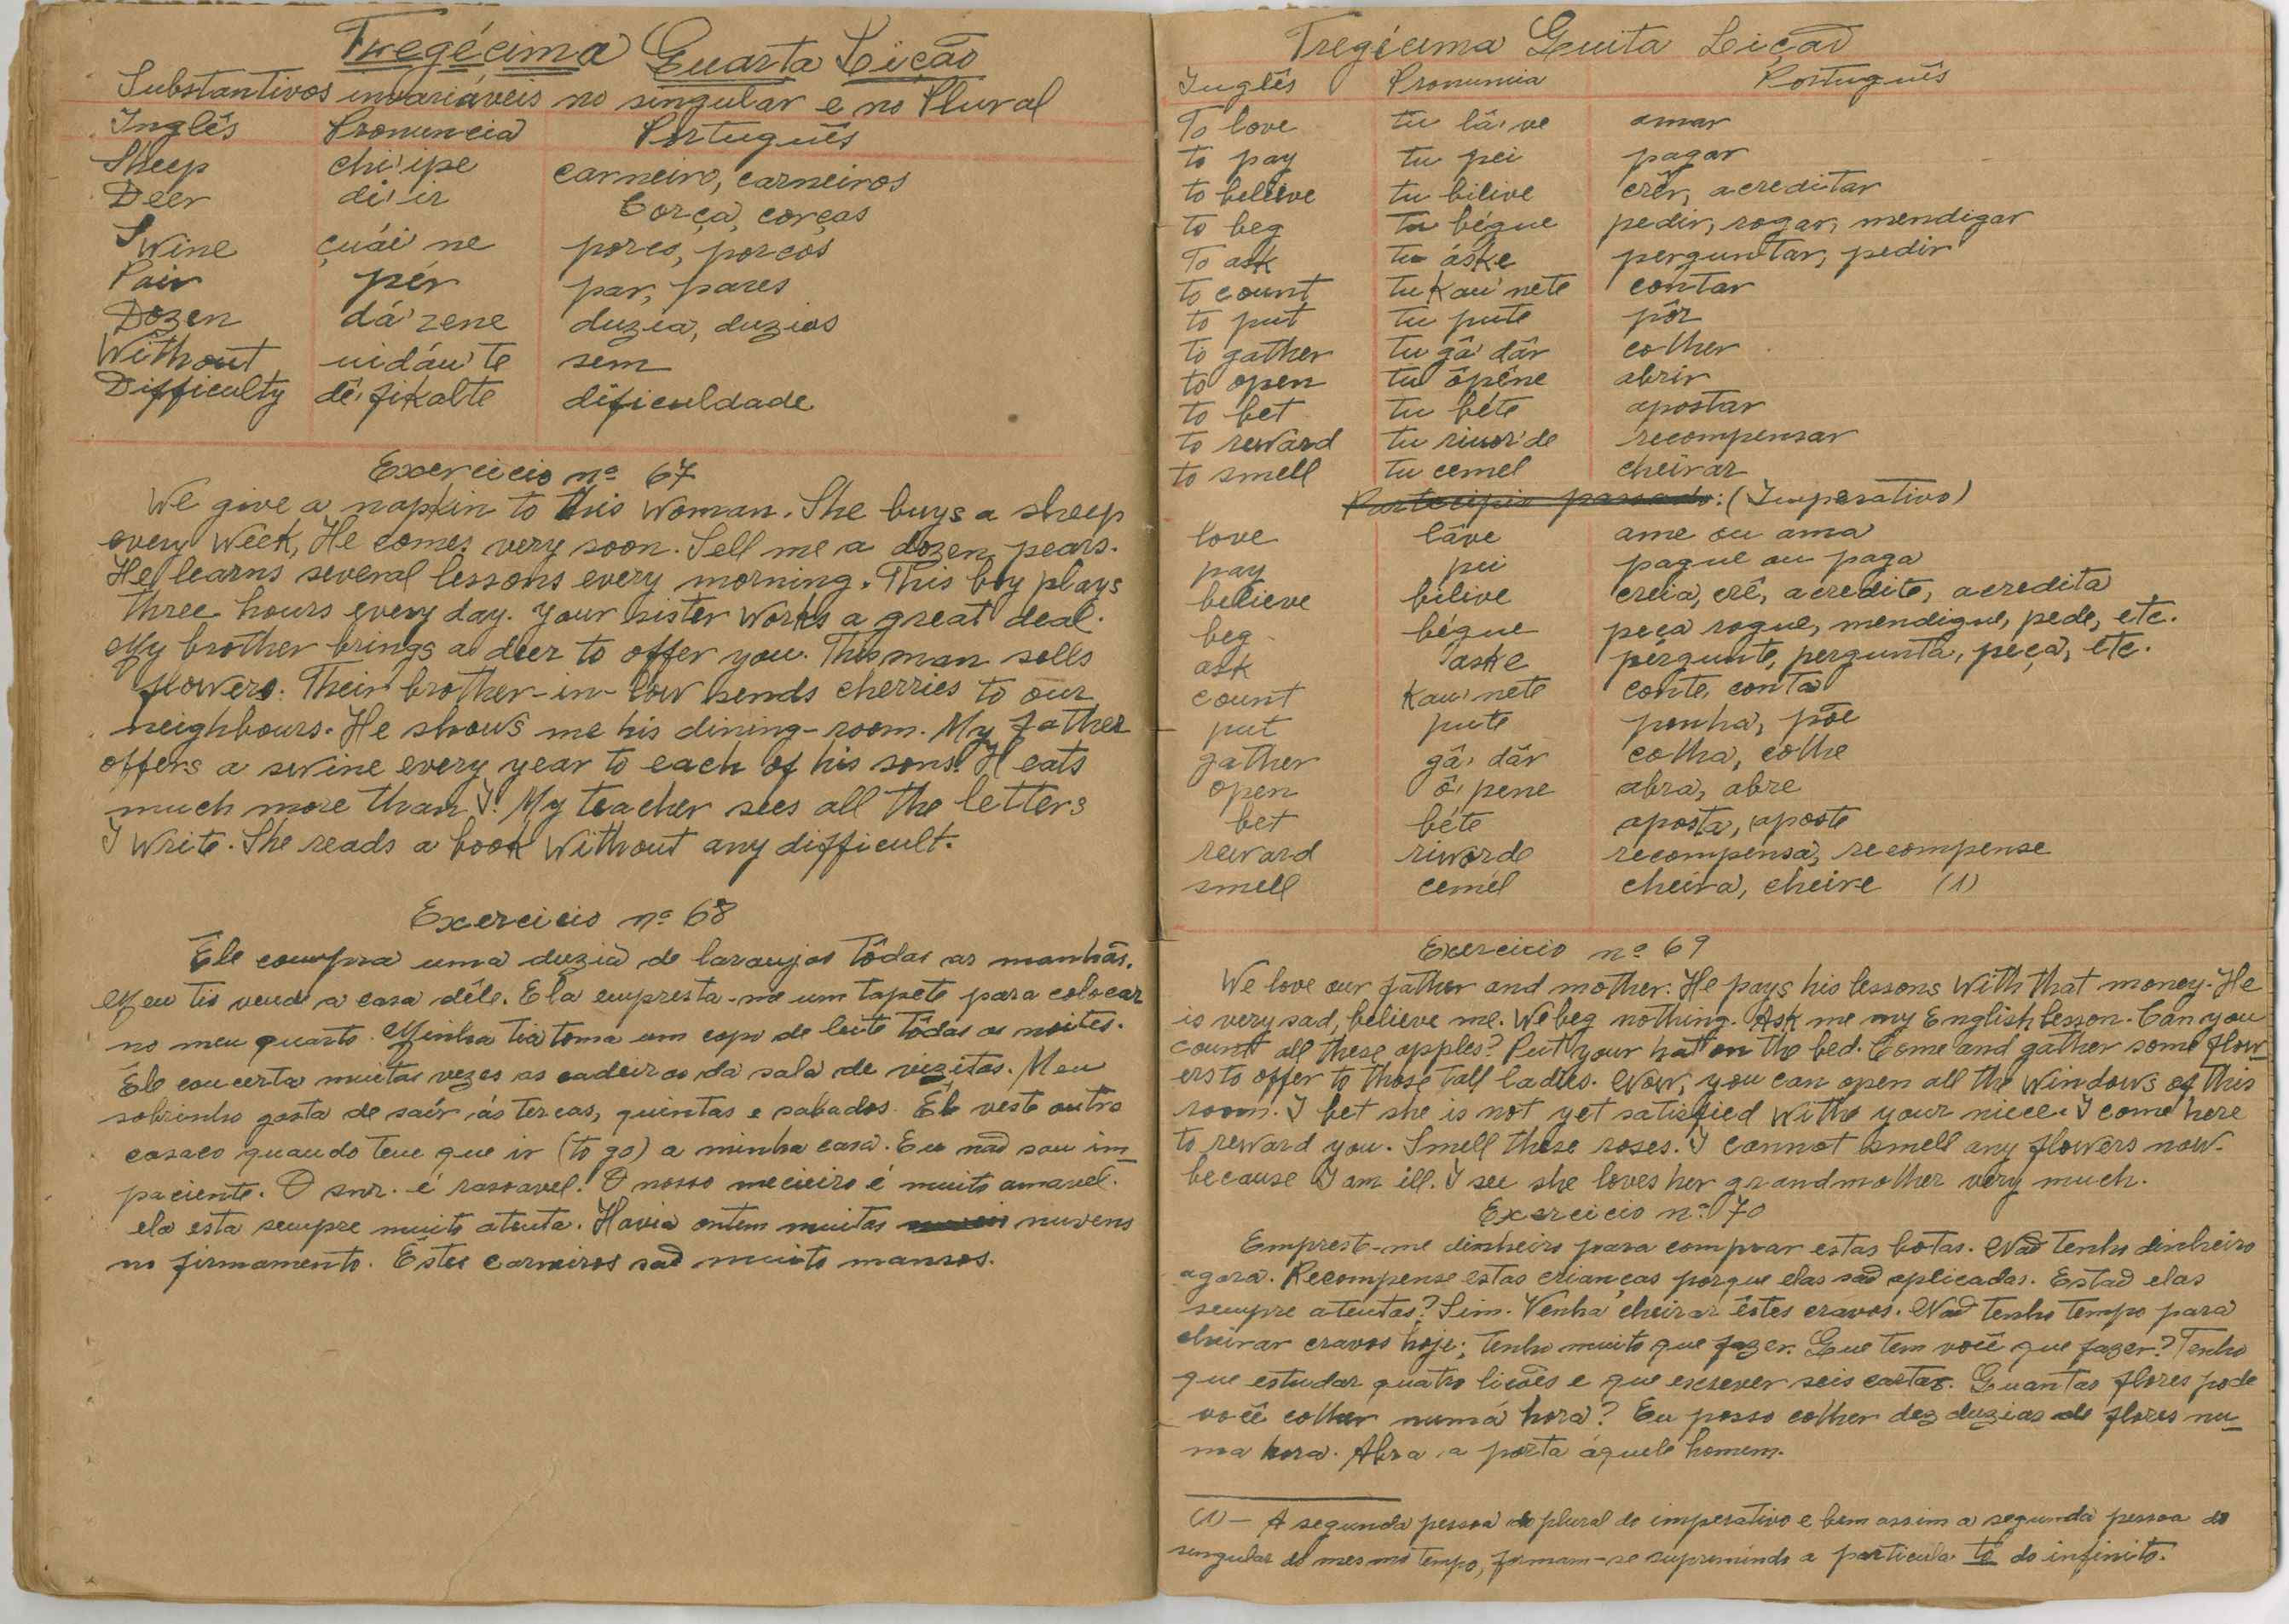 Tregécima Quarta Lição
Substantivos invariáveis no singular e no Plural
Inglês Pronuncia Português
Sheep chi'ipe carneiro, carneiros
Deer di'ir Corça, corças
Swine çuái ne porco, porcos
Pair pér par, pares
Dozen dá'zene duzia, duzias
Without uidáu'te sem
Difficulty dê'fikalte dificuldade
Exercicio nº 67
We give a napkin to this woman. She buys a sheep
every week, He comes very soon. Sell me a dozen pears.
He learns several lessons every morning. This boy plays
three hours every day. Your sister works a great deal.
My brother brings a deer to offer you. This man sells
flowers. Their brother-in-low sends cherries to our
neighbours. He shows me his dining-room. My father
offers a swine every year to each of his sons. H eats
much more than I. My teacher sees all the letters
I write. She reads a book without any difficult.
Exercicio nº 68
Êle compra uma duzia de laranjas tôdas as manhãs.
Meu tio vende a casa dêle. Ela empresta-me um tapete para colocar
no meu quarto. Minha tia toma um copo de leite tôdas as noites.
Êle concerta muitas vezes as cadeiras da sala de vizitas. Meu
sobrinho gosta de saír ás terças, quintas e sabados. Êle veste outro
casaco quando tem que ir (to go) a minha casa. Eu não sou im-
paciente. O snr. é rasoavel. O nosso meeieiro é muito amavel.
ela esta sempre muito atenta. Havia ontem muitas nuvens
no firmamento. Êstes carneiros são muito mansos.
Tregécima Quita Lição
Inglês Pronuncia Português
To love tu lâ've amar
to pay tu pei pagar
to believe tu bilive crêr, acreditar
to beg tu bégue pedir, rogar, mendigar
To ask tu áske perguntar, pedir
to count tu kau'nete contar
to put tu pute pôr
to gather tu gâ'dâr colher
to open tu ôpêne abrir
to bet tu béte apostar
to reward tu riuor'de recompensar
to smell tu cemel cheirar
Participio passado: (Imperativo)
love lâve ame ou ama
pay pei pague ou paga
believe bilive creia, crê, acredite, acredita
beg bégue peça rogue, mendigue, pede, etc.
ask aske pergunte, pergunta, peça, etc.
count kau'nete conte, conta
put pute ponha, põe
gather gâ'dâr colha, colhe
open ô'pene abra, abre
bet béte aposta, aposte
reward riworde recompensa, recompense
smell cemél cheira, cheire (1)
Exercicio nº 69
We love our father and mother. He pays his lessons with that money. He
is very sad, believe me. We beg nothing. Ask me my English lesson. Can you
count all these apples? Put your hat on the bed. Come and gather some flow-
ers to offer to those tall ladies. Now, you can open all the windows of this
room. I bet she is not yet satisfied withe your niece. I come here
to reward you. Smell these roses. I cannot smell any flowers now
because I am ill. I see she loves her grandmother very much.
Exercicio nº 70
Empreste-me dinheiro para comprar estas botas. Não tenho dinheiro
agora. Recompense estas crianças porque elas são aplicadas. Estão elas
sempre atentas? Sim. Venha cheirar êstes cravos. Não tenho tempo para
cheirar cravos hoje; tenho muito que fazer. Que tem você que fazer? Tenho
que estudar quatro licões e que escrever seis cartas. Quantas flores pode
você colher numá hora? Eu posso colher dez duzias de flores nu-
ma hora. Abra a porta áquele homem.
(1) — A segunda pessoa do plural do imperativo e bem assim a segunda pessoa do
singular do mesmo tempo, formam-se supremindo a particula to do infinito.